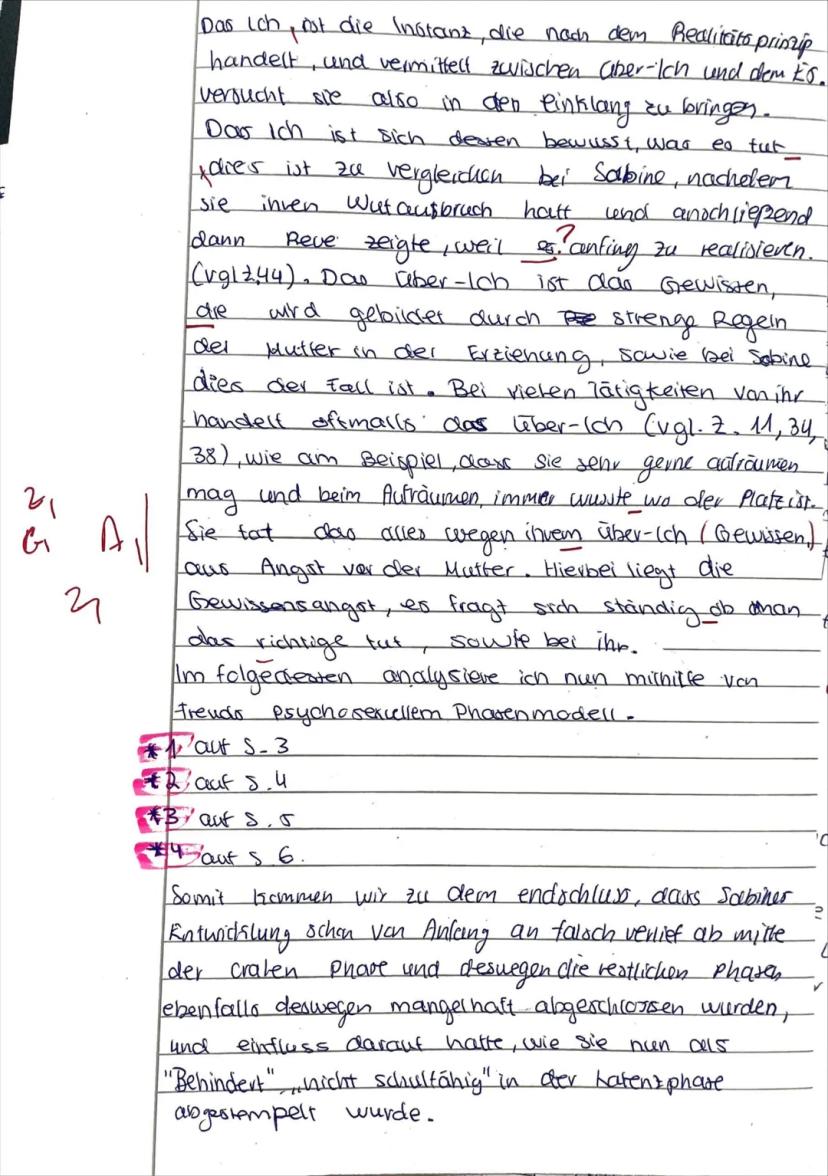 Das Ich, ist die Instanz, die nach dem Realitätsprinzip
handelt, und vermittelt zwischen über-Ich und dem Es.
versucht sie also in den einklang zu bringen.
Das Ich ist sich dessen bewusst, was es tut
dies ist zu vergleichen bei Sabine, nachdem
sie ihren Wutausbruch hatt und anschließend
dann Reue zeigte, weil es ? anfing zu realisieren.
(vgl Z.44). Das über-Ich ist das Gewissen,
die wird gebildet durch strenge Regeln
der Mutter in der Erziehung, sowie bei Sabine
dies der Fall ist. Bei vielen Tätigkeiten von ihr
handelt oftmalls das Über-Ich (vgl. Z. 11, 34,
38), wie am Beispiel, dass sie sehr gerne aufräumen
mag und beim Aufräumen, immer wusste wo der Platz ist.
Sie tat das alles wegen ihrem über-Ich (Gewissen)
aus Angst vor der Mutter. Hierbei liegt die
Gewissensangst, es fragt sich ständig ob man
das richtige tut, sowie bei ihr.
Im folgedessen analysiere ich nun mithilfe von
Freuds psychosexuellem Phasenmodell.
*1 auf S. 3
*2 auf S. 4
*3 auf S. 5
*4 auf S 6.
Somit kommen wir zu dem endschluss, dass Sabines
Entwicklung schon von Anfang an falsch verlief ab mitte
der oralen Phase und deswegen die restlichen Phasen
ebenfalls deswegen mangelhaft abgeschlossen wurden,
und einfluss darauf hatte, wie sie nun als
"Behindert" „nicht schulfähig" in der Latenzphase
abgestempelt wurde.
Z,
G, A,
Z,